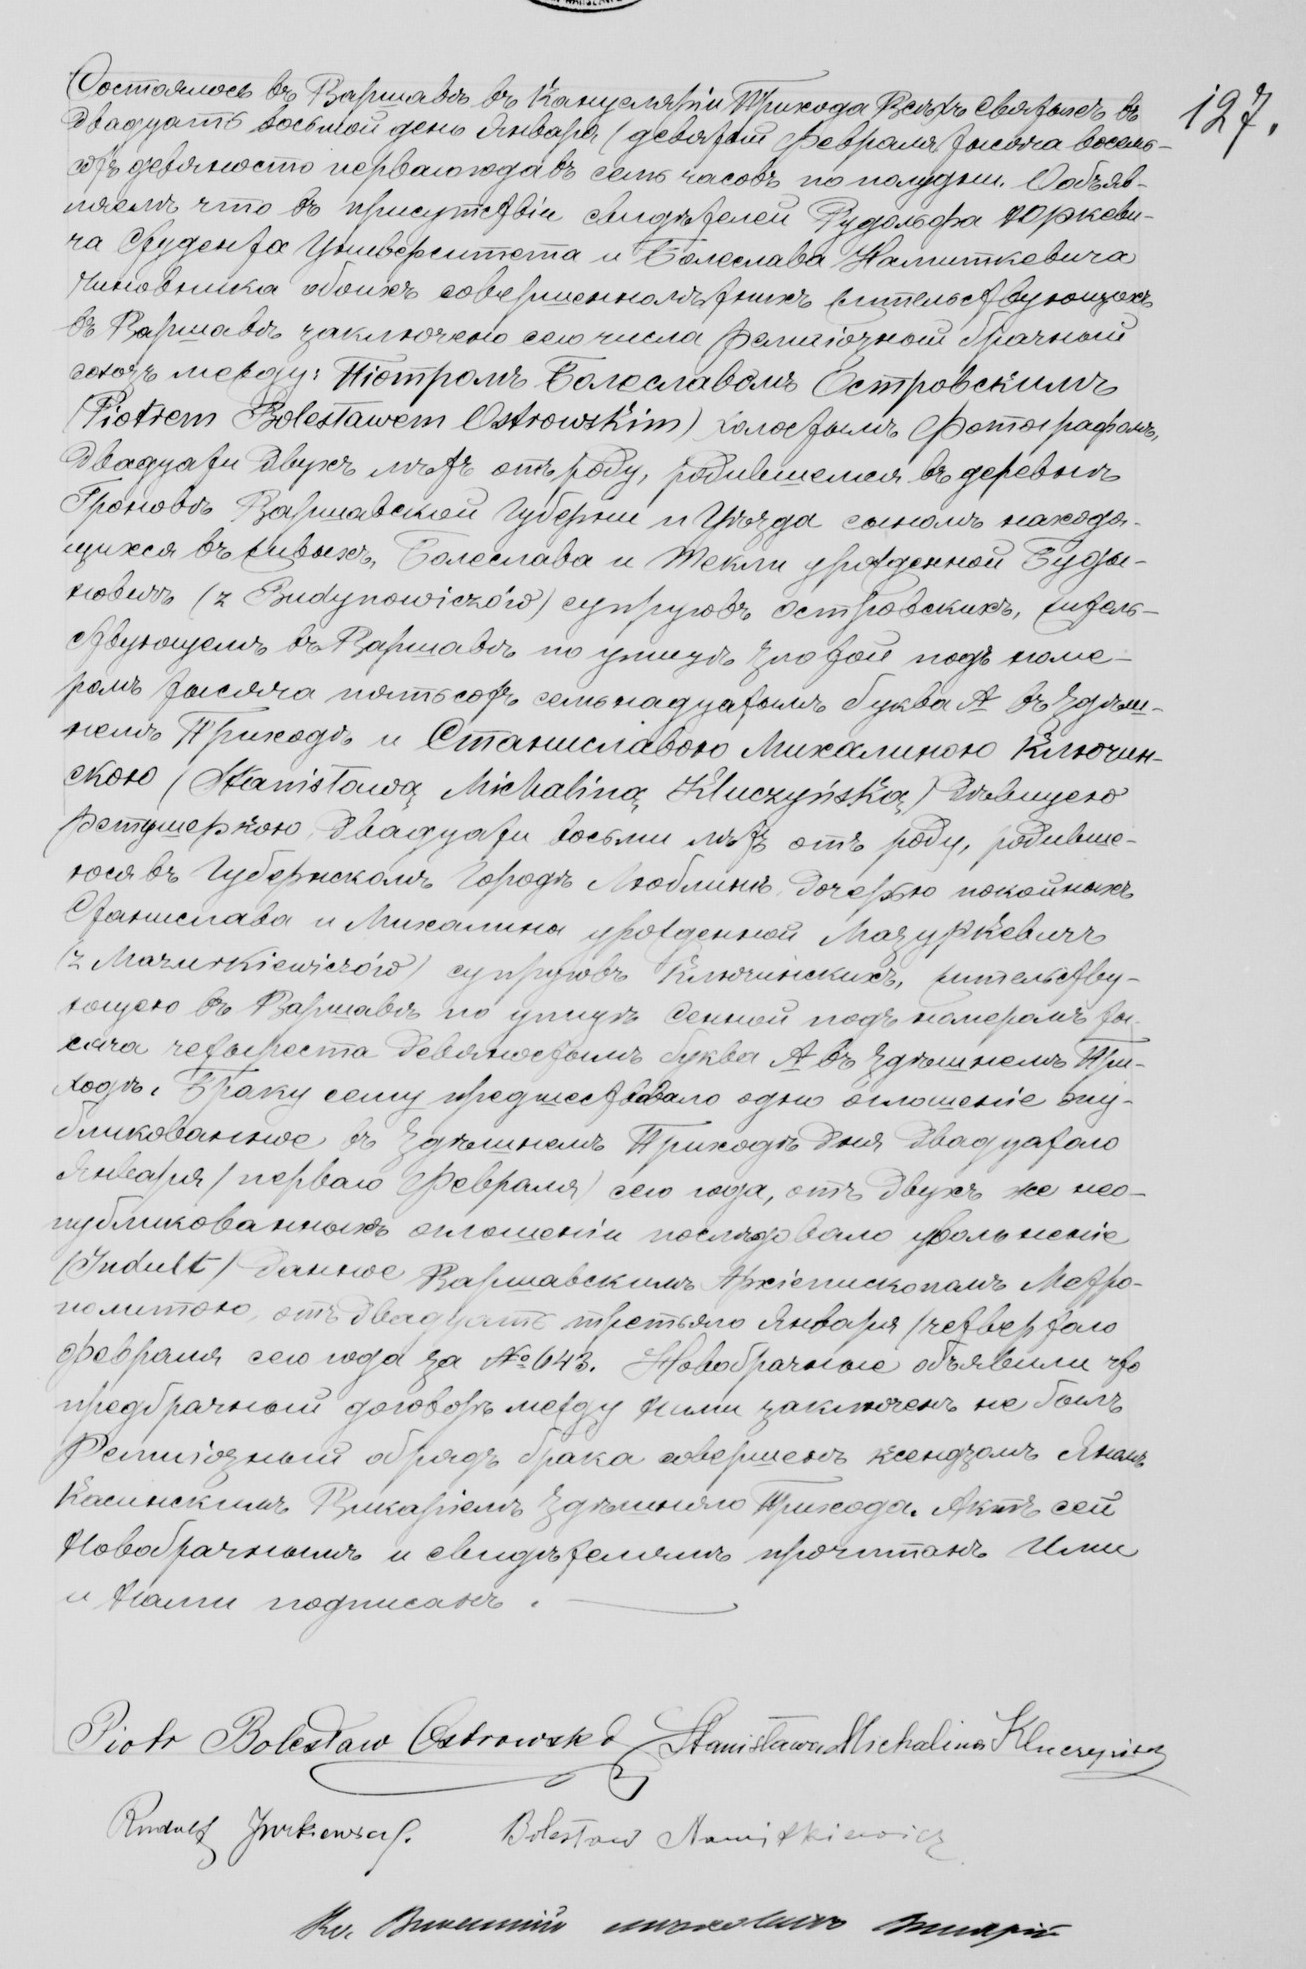 127.
Состоялось въ Варшавѣ въ Канцеляріи Прихода Всѣхъ Святыхъ въ
двадцать восьмой день Января (девятый Февраля тысяча восемь-
сотъ девяносто перваго года въ семь часовъ по полудни. Объяв-
ляемъ что въ присутствіи свидѣтелей Рудольфа Юркеви-
ча Студента Университета и Болеслава Намиткевича
Чиновника обоихъ совершеннолѣтнихъ жительствующихъ
въ Варшавѣ заключено сего числа религіозный брачный
союзъ между: Піотромъ Болеславомъ Островскимъ
(Piotrem Bolesławem Ostrowskim) холостымъ Фотографомъ,
двадцати двухъ лѣтъ отъ роду, родившемся въ деревнѣ
Гроховѣ Варшавской Губерніи и Уѣзда сыномъ находя-
щихся въ живыхъ, Болеслава и Текли урожденной Буды-
новичъ (z Budynowiczów) супруговъ Островскихъ, житель-
ствующемъ въ Варшавѣ по улицѣ Злотой подъ номе-
ромъ тысяча пятьсотъ семьнадцатымъ буква А въ здѣш-
немъ Приходѣ и Станиславою Михалиною Ключин-
скою (Stanisławą Michaliną Kluczyńską) дѣвицею
ретушеркою, двадцати восьми лѣтъ отъ роду, родивше-
юся въ Губернскомъ Городѣ Люблинѣ, дочерью покойныхъ
Станислава и Михалины урожденной Мазуркевичъ
(z Mazurkiewiczów) супруговъ Ключинскихъ, жительству-
ющею въ Варшавѣ по улицѣ Сенной подъ номеромъ ты-
сяча четыреста девяностымъ буква А въ здѣшнемъ При-
ходѣ. Браку сему предшествовало одно оглашеніе опу-
бликованное въ здѣшнемъ Приходѣ дня двадцатаго
Января (перваго Февраля) сего года, отъ двухъ же нео-
публикованныхъ оглашеніи послѣдовало увольненіе
(Indult) данное Варшавскимъ Архіепископомъ Метро-
политою, отъ двадцать третьяго Января (четвертаго
Февраля сего года за № 643. Новобрачные объявили что
предбрачный договоръ между ними заключенъ не былъ
Религіозный обрядъ брака совершенъ ксендзомъ Яномъ
Касинскимъ Викаріемъ здѣшняго Прихода. Актъ сей
Новобрачнымъ и свидѣтелямъ прочитанъ Ими
и Нами подписанъ.
Piotr Bolesław Ostrowski Stanisława Michalina Kluczyńska
Rudolf Jurkiewicz. Bolesław Namitkiewicz
Кс.